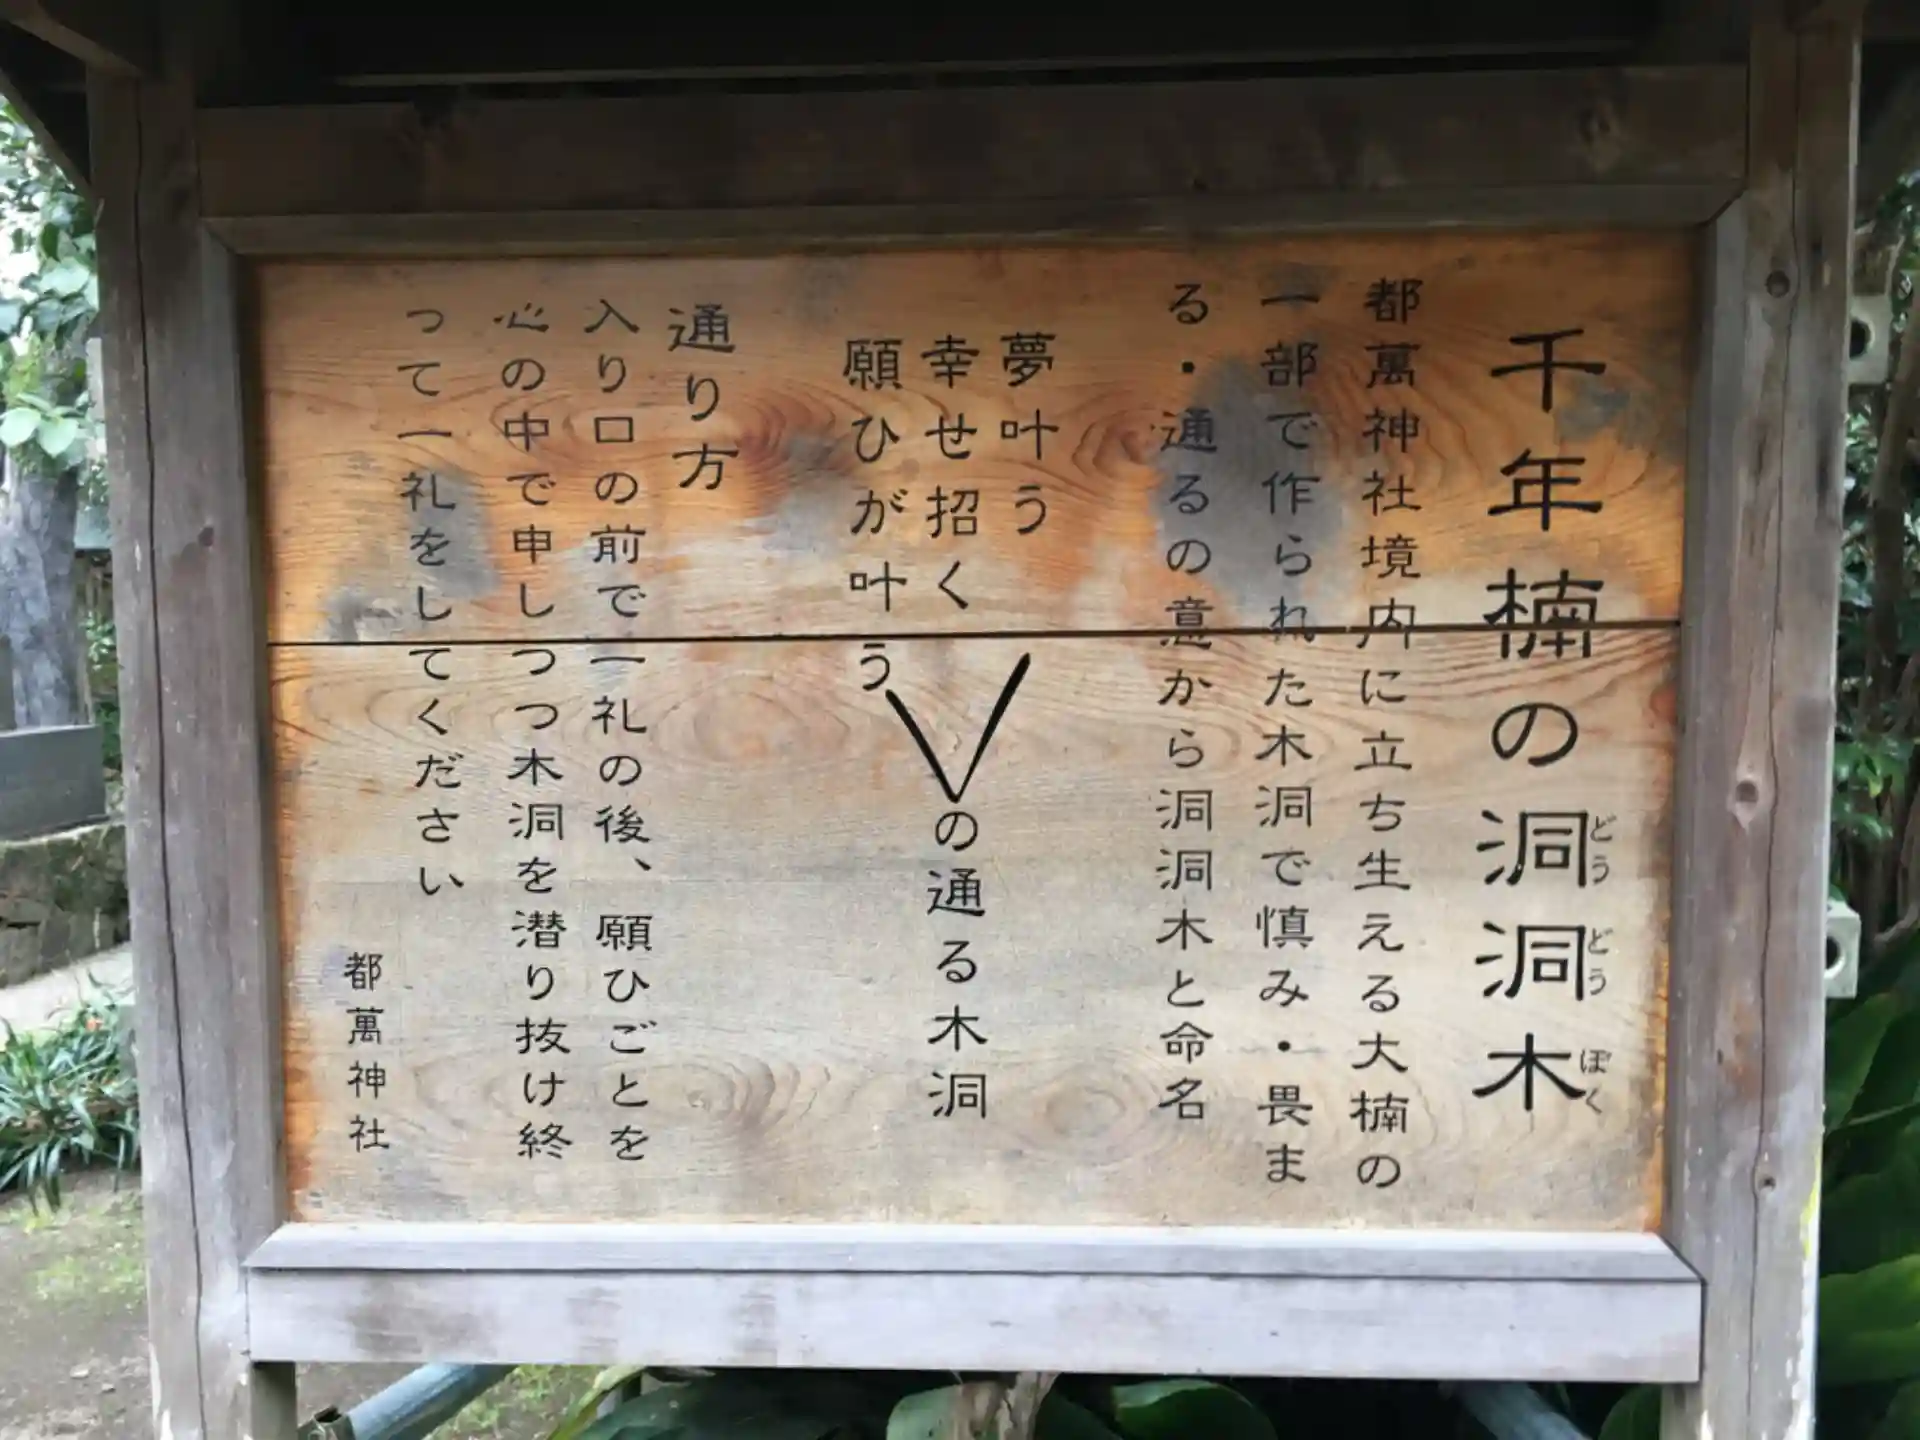 千年楠の洞洞木
どう どう ぼく
都萬神社境内に立ち生える大楠の
一部で作られた木洞で慎み・畏ま
る・通るの意から洞洞木と命名
夢叶う
幸せ招く
願ひが叶う
の通る木洞
通り方
入り口の前で一礼の後、願ひごとを
心の中で申しつつ木洞を潜り抜け終
って一礼をしてください
都萬神社